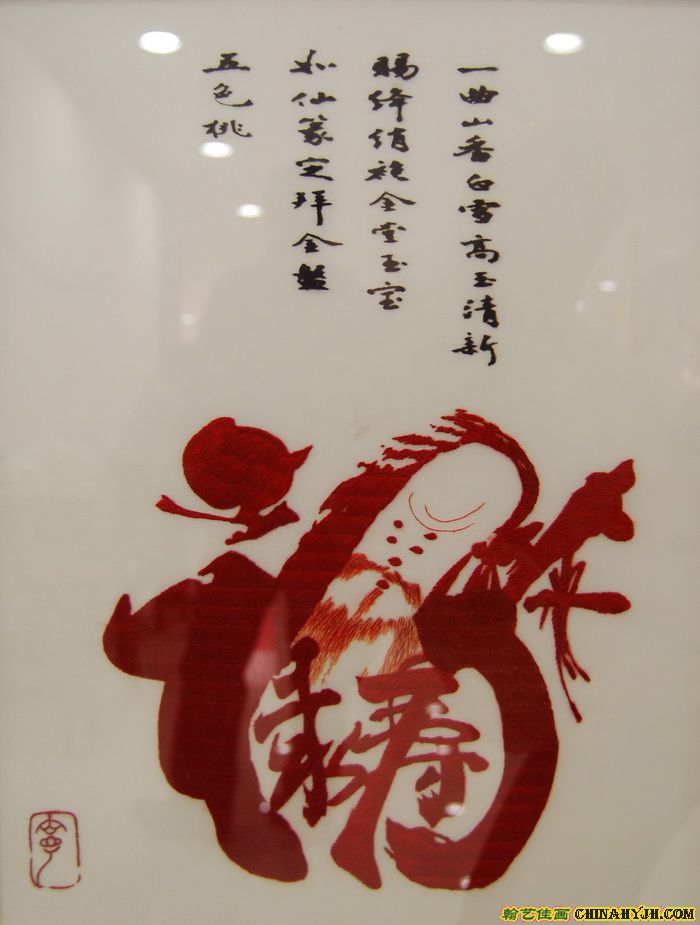 一曲山香白雪高玉清新
賜绛绡袍金堂玉宝
如仙篆定拜金盤
五色桃
寿
翰艺佳画 CHINAHYJH.COM